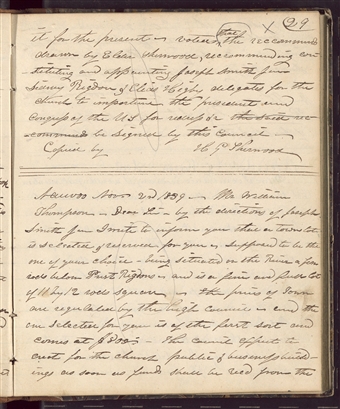 29
it for the present is voted that the recommend
drawn by Elder Sherwood, recommending con
stituting and appointing Joseph Smith Junr
Sidney Rigdon & Elias Higby delegates for the
church to importune the president and
Congress of the US for redress &c the said re-
commend be signed by this Council
Copied by H G Sherwood
Nauvoo Novr 2nd 1839 Mr William
Thompson Dear Sir by the directions of Joseph
Smith Jur I write to inform you that a town lot
is selected & reserved for you is supposed to be the
one of your choice being situated on the River a few
rods below Prest Rigdons and is a fine and good lot
of 11 by 12 rods square the prices of Town
are regulated by the high council and the
one selected for you is of the first sort and
comes at $ 800 The council expect to
erect for the church public & business build-
ings as soon as funds shall be recd from the